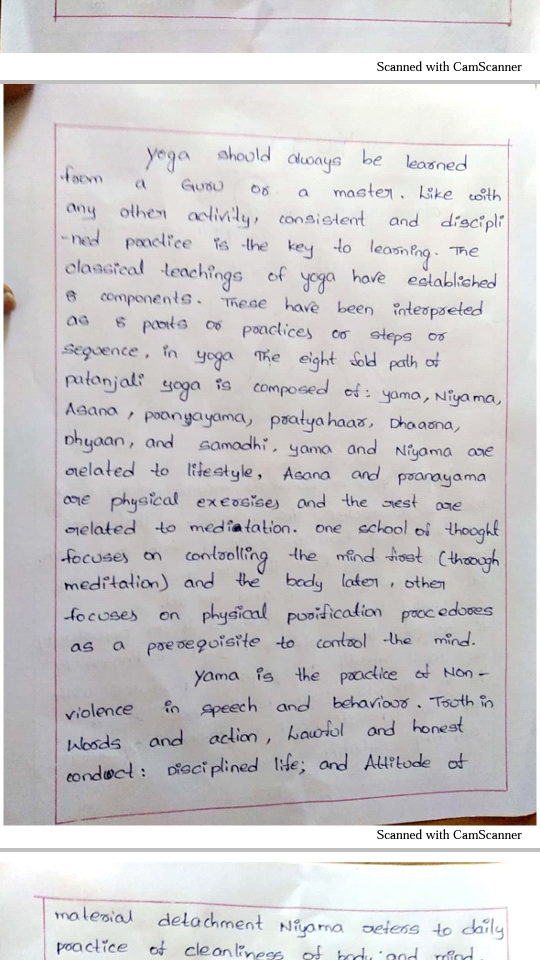 Scanned with CamScanner
yoga should always be learned
from a Guru or a master. Like with
any other activity, consistent and discipli
-ned practice is the key to learning. The
classical teachings of yoga have established
8 components. These have been interpreted
as 8 parts or practices or steps or
sequence, in yoga The eight fold path of
patanjali yoga is composed of: yama, Niyama,
Asana, pranyayama, pratyahaar, Dhaarna,
Dhyaan, and samadhi, yama and Niyama are
related to lifestyle, Asana and pranayama
are physical exersises and the rest are
related to mediatation. one school of thought
focuses on controlling the mind first (through
meditation) and the body later, other
focuses on physical purification procedures
as a prerequisite to control the mind.
yama is the practice of Non-
violence in speech and behaviour. Truth in
Words and action, Lawful and honest
conduct: Disciplined life; and Attitude of
Scanned with CamScanner
material detachment Niyama refers to daily
practice of cleanliness of body and mind.